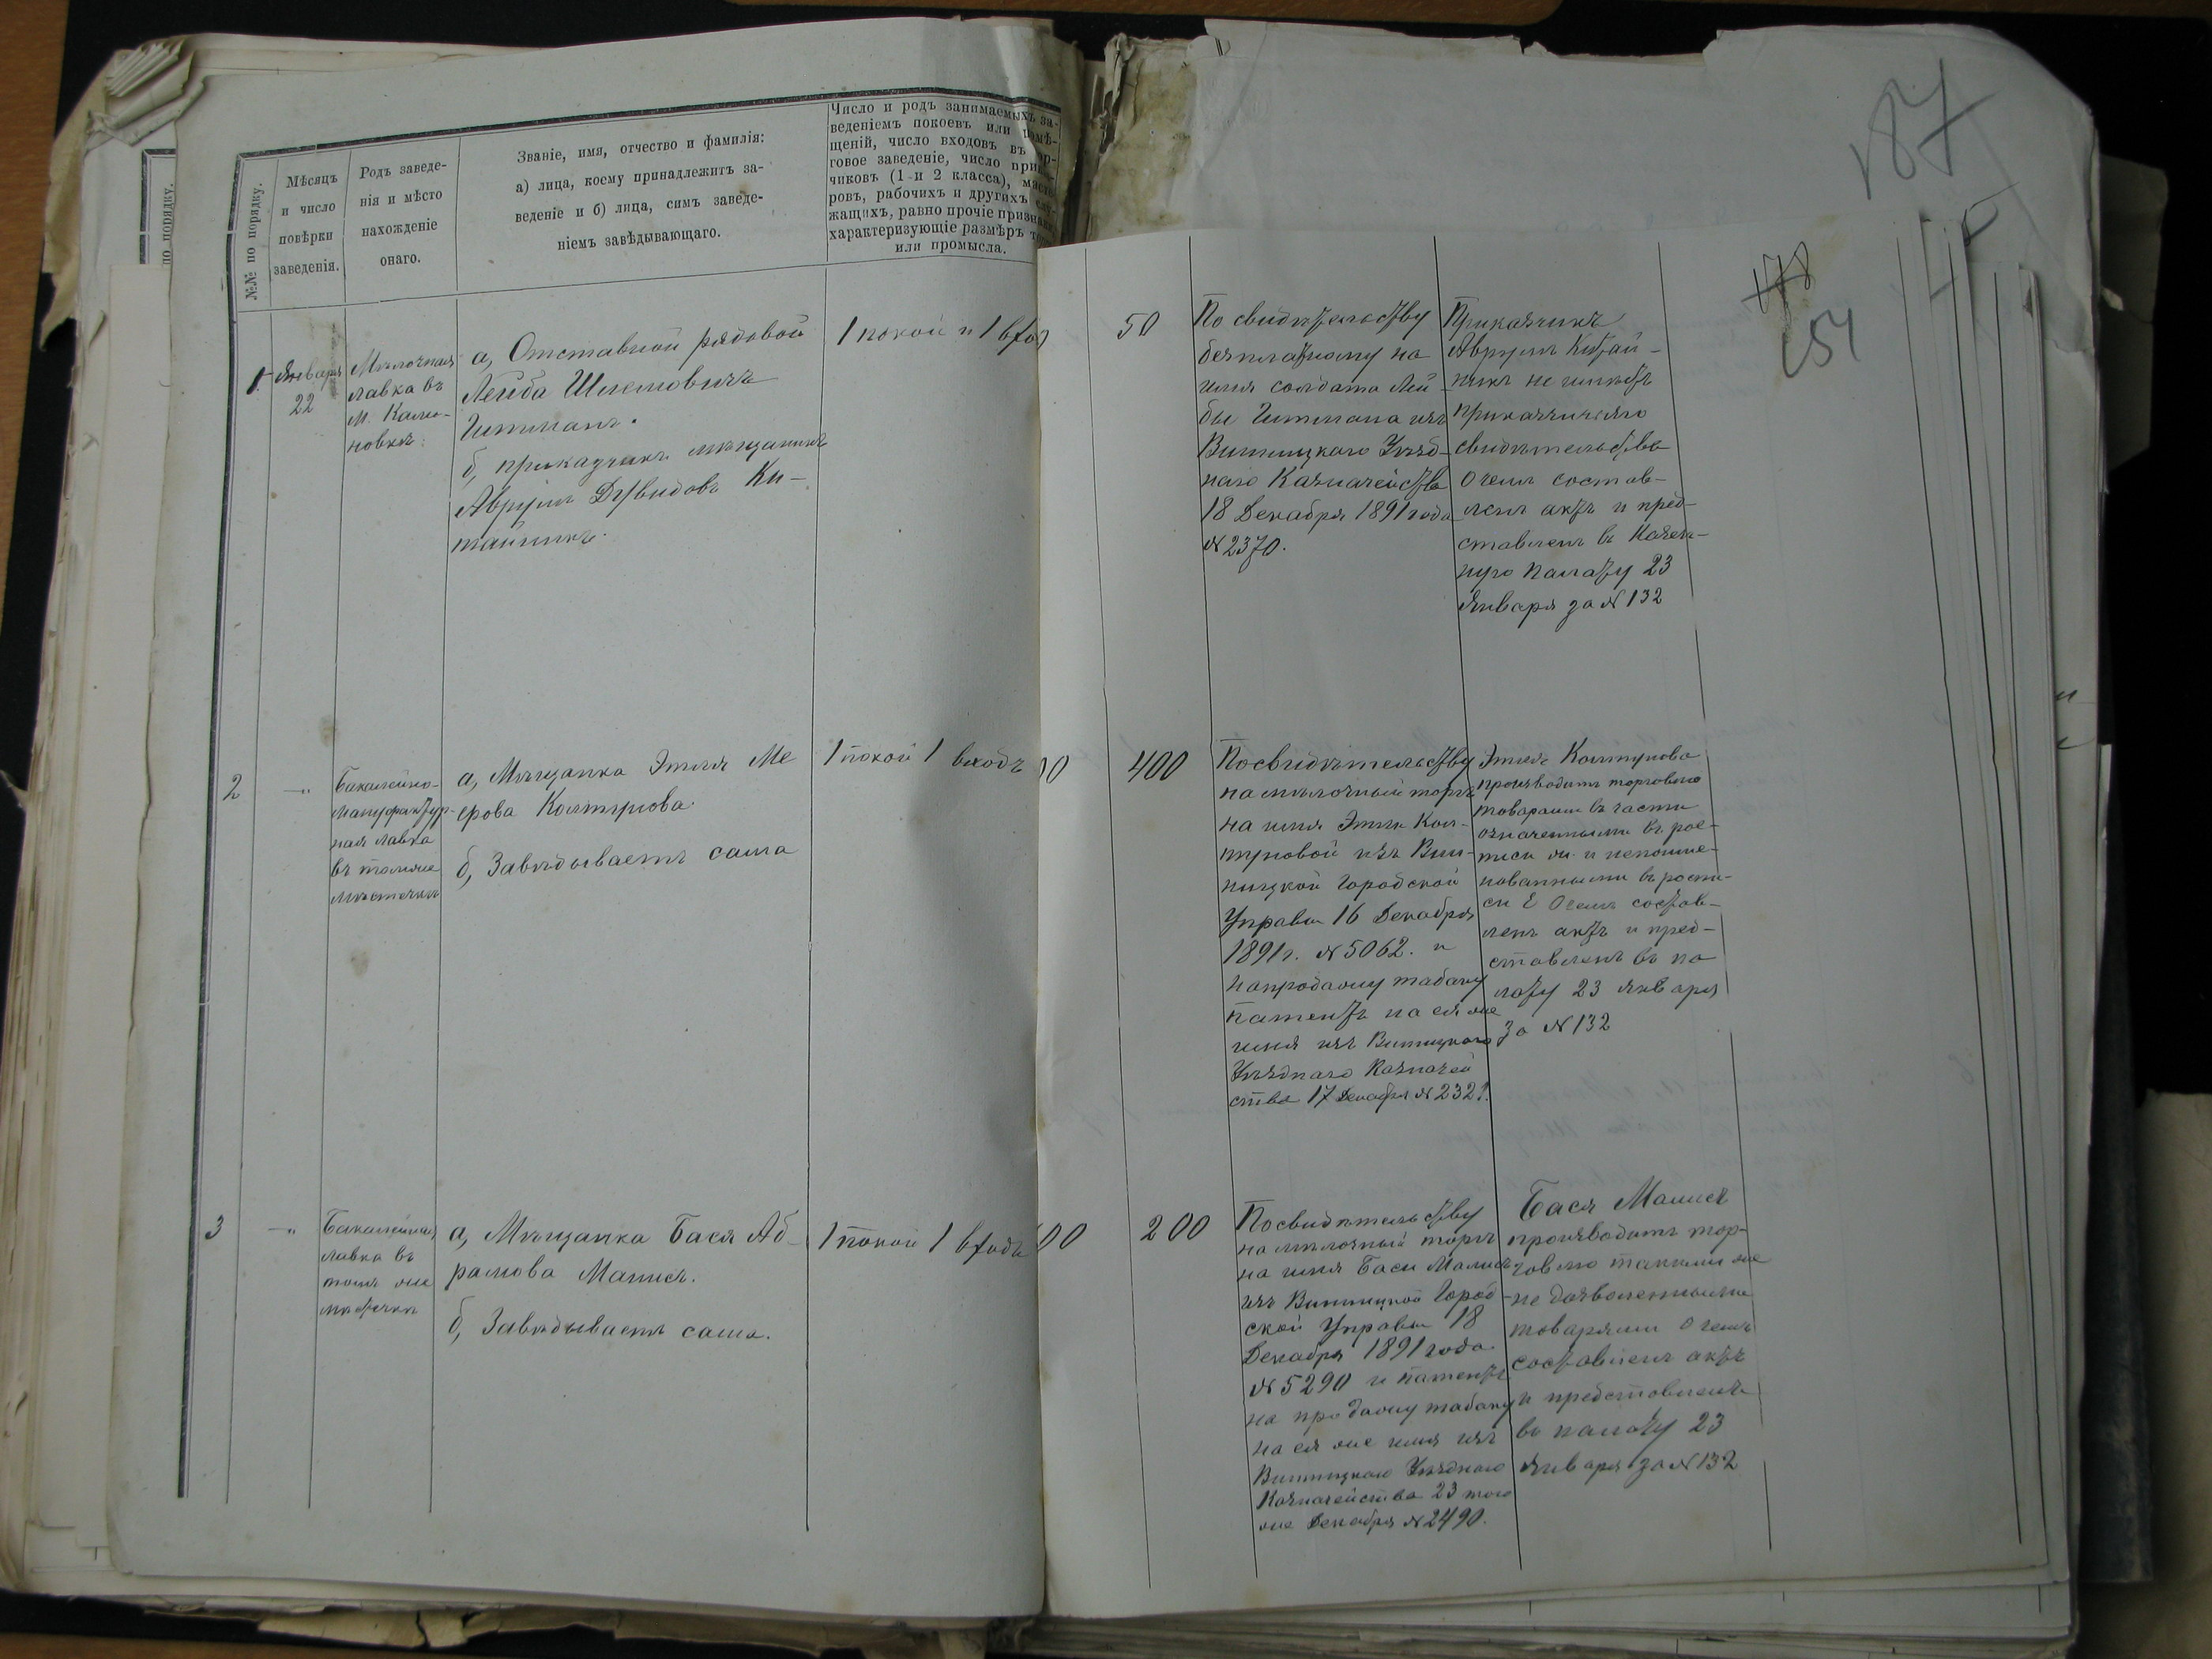 №№ по порядку.
Мѣсяцъ
и число
повѣрки
заведенія.
Родъ заведе-
нія и мѣсто
нахожденіе
онаго.
Званіе, имя, отчество и фамилія:
а) лица, коему принадлежитъ за-
веденіе и б) лица, симъ заведе-
ніемъ завѣдывающаго.
Число и родъ занимаемыхъ за-
веденіемъ покоевъ или помѣ-
щеній, число входовъ въ тор-
говое заведеніе, число прика-
чиковъ (1 и 2 класса), масте-
ровъ, рабочихъ и другихъ слу-
жащихъ, равно прочіе признаки,
характеризующіе размѣръ
или промысла.
по порядку.
187
178
54
1
Января
22
Мѣлочная
лавка въ
м. Кали-
новкѣ
а, Отставной рядовой
Лейба Шлемовичъ
Гитманъ.
б, прикащикъ мѣщанинъ
Аврумъ Дувидовъ Ки-
тайникъ.
1 покой и 1 вход
50
По свидѣтельству
безплатному на
имя солдата Лей-
бы Гитмана изъ
Винницкаго Уѣзд-
наго Казначейства
18 Декабря 1891 года
№ 2370.
Приказчикъ
Аврумъ Китай-
никъ не имѣетъ
приказчичьяго
свидѣтельства
О чемъ состав-
ленъ актъ и пред-
ставленъ въ Казен-
ную палату 23
Января за № 132
2
—"
Бакалейно-
мануфактур-
ная лавка
въ томже
мѣстечкѣ
а, Мѣщанка Этля Ме
ерова Колтунова.
б, Завѣдываетъ сама
1 покой 1 входъ
00
400
По свидѣтельству
на мѣлочный торгъ
на имя Этли Кол-
туновой изъ Вин-
ницкой Городской
Управы 16 Декабря
1891 г. № 5062. и
на продажу табаку
патентъ на ея же
имя изъ Винницкаго
Уѣзднаго Казначей
ства 17 Декабря № 2321.
Этля Колтунова
производитъ торговлю
товарами въ части
означенными въ рос-
писи и непоиме-
нованными въ роспи-
си Е О чемъ состав-
ленъ актъ и пред-
ставленъ въ па
лату 23 Января
За № 132
3
—"
Бакалейная
лавка въ
томъ же
мѣстечкѣ
а, Мѣщанка Бася Аб-
рамова Малисъ.
б, Завѣдываетъ сама.
1 покой 1 входъ
00
200
По свидѣтельству
на мѣлочный торгъ
на имя Баси Малисъ
изъ Винницкой Город-
ской Управы 18
Декабря 1891 года
№ 5290 и патентъ
на продажу табаку
на ея же имя изъ
Винницкаго Уѣзднаго
Казначейства 23 того
же Декабря № 2490.
Бася Малисъ
производитъ тор-
говлю такими же
не дозволенными
товарами О чемъ
составленъ актъ
и представленъ
въ палату 23
Января за № 132